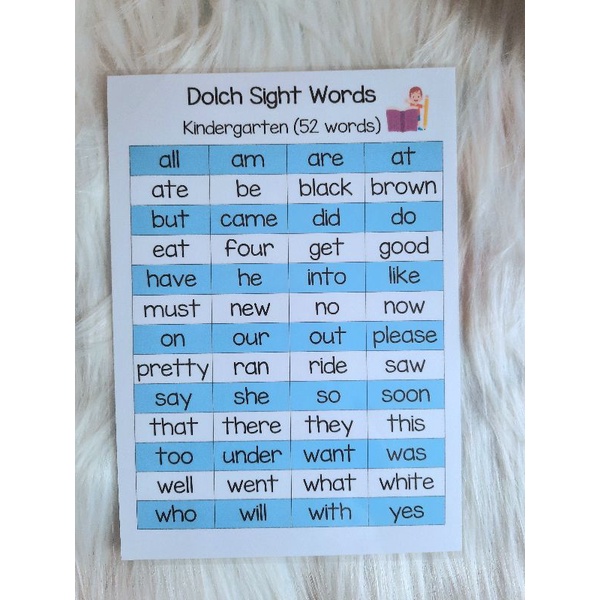 Dolch Sight Words
Kindergarten (52 words)
all am are at
ate be black brown
but came did do
eat four get good
have he into like
must new no now
on our out please
pretty ran ride saw
say she so soon
that there they this
too under want was
well went what white
who will with yes